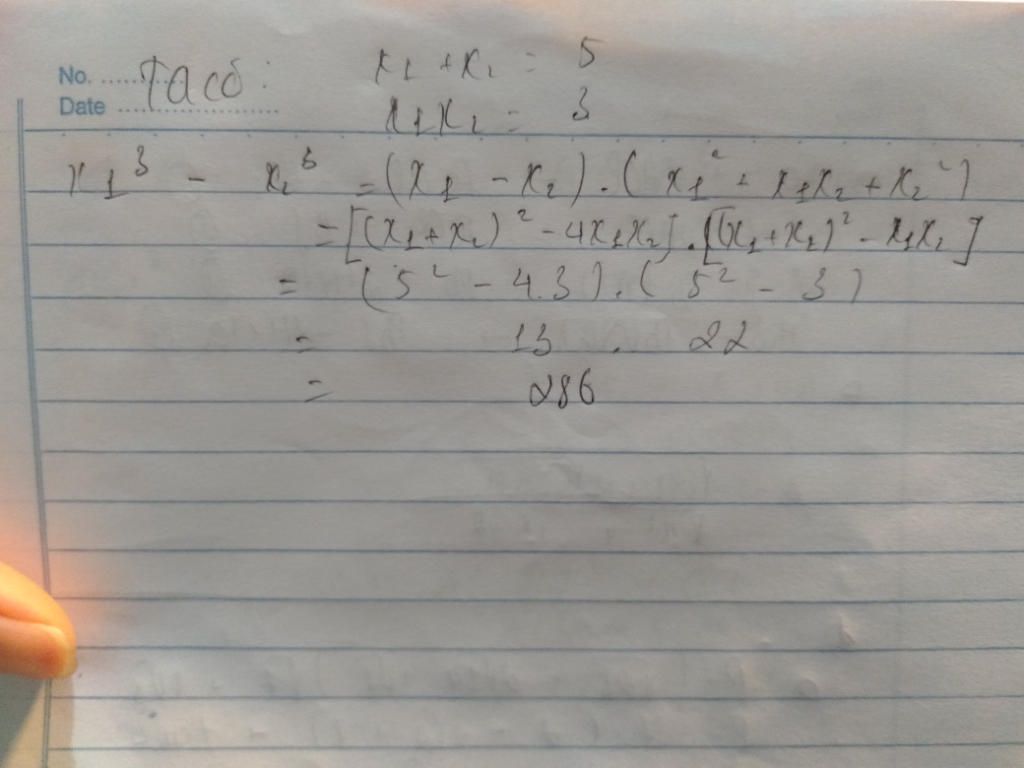 No. ............
Date ..................
Ta có:
x₁ + x₂ = 5
x₁x₂ = 3
x₁³ - x₂³ = (x₁ - x₂).(x₁² + x₁x₂ + x₂²)
= [(x₁+x₂)² - 4x₁x₂].[(x₁+x₂)² - x₁x₂]
= (5² - 4.3).(5² - 3)
= 13 . 22
= 286